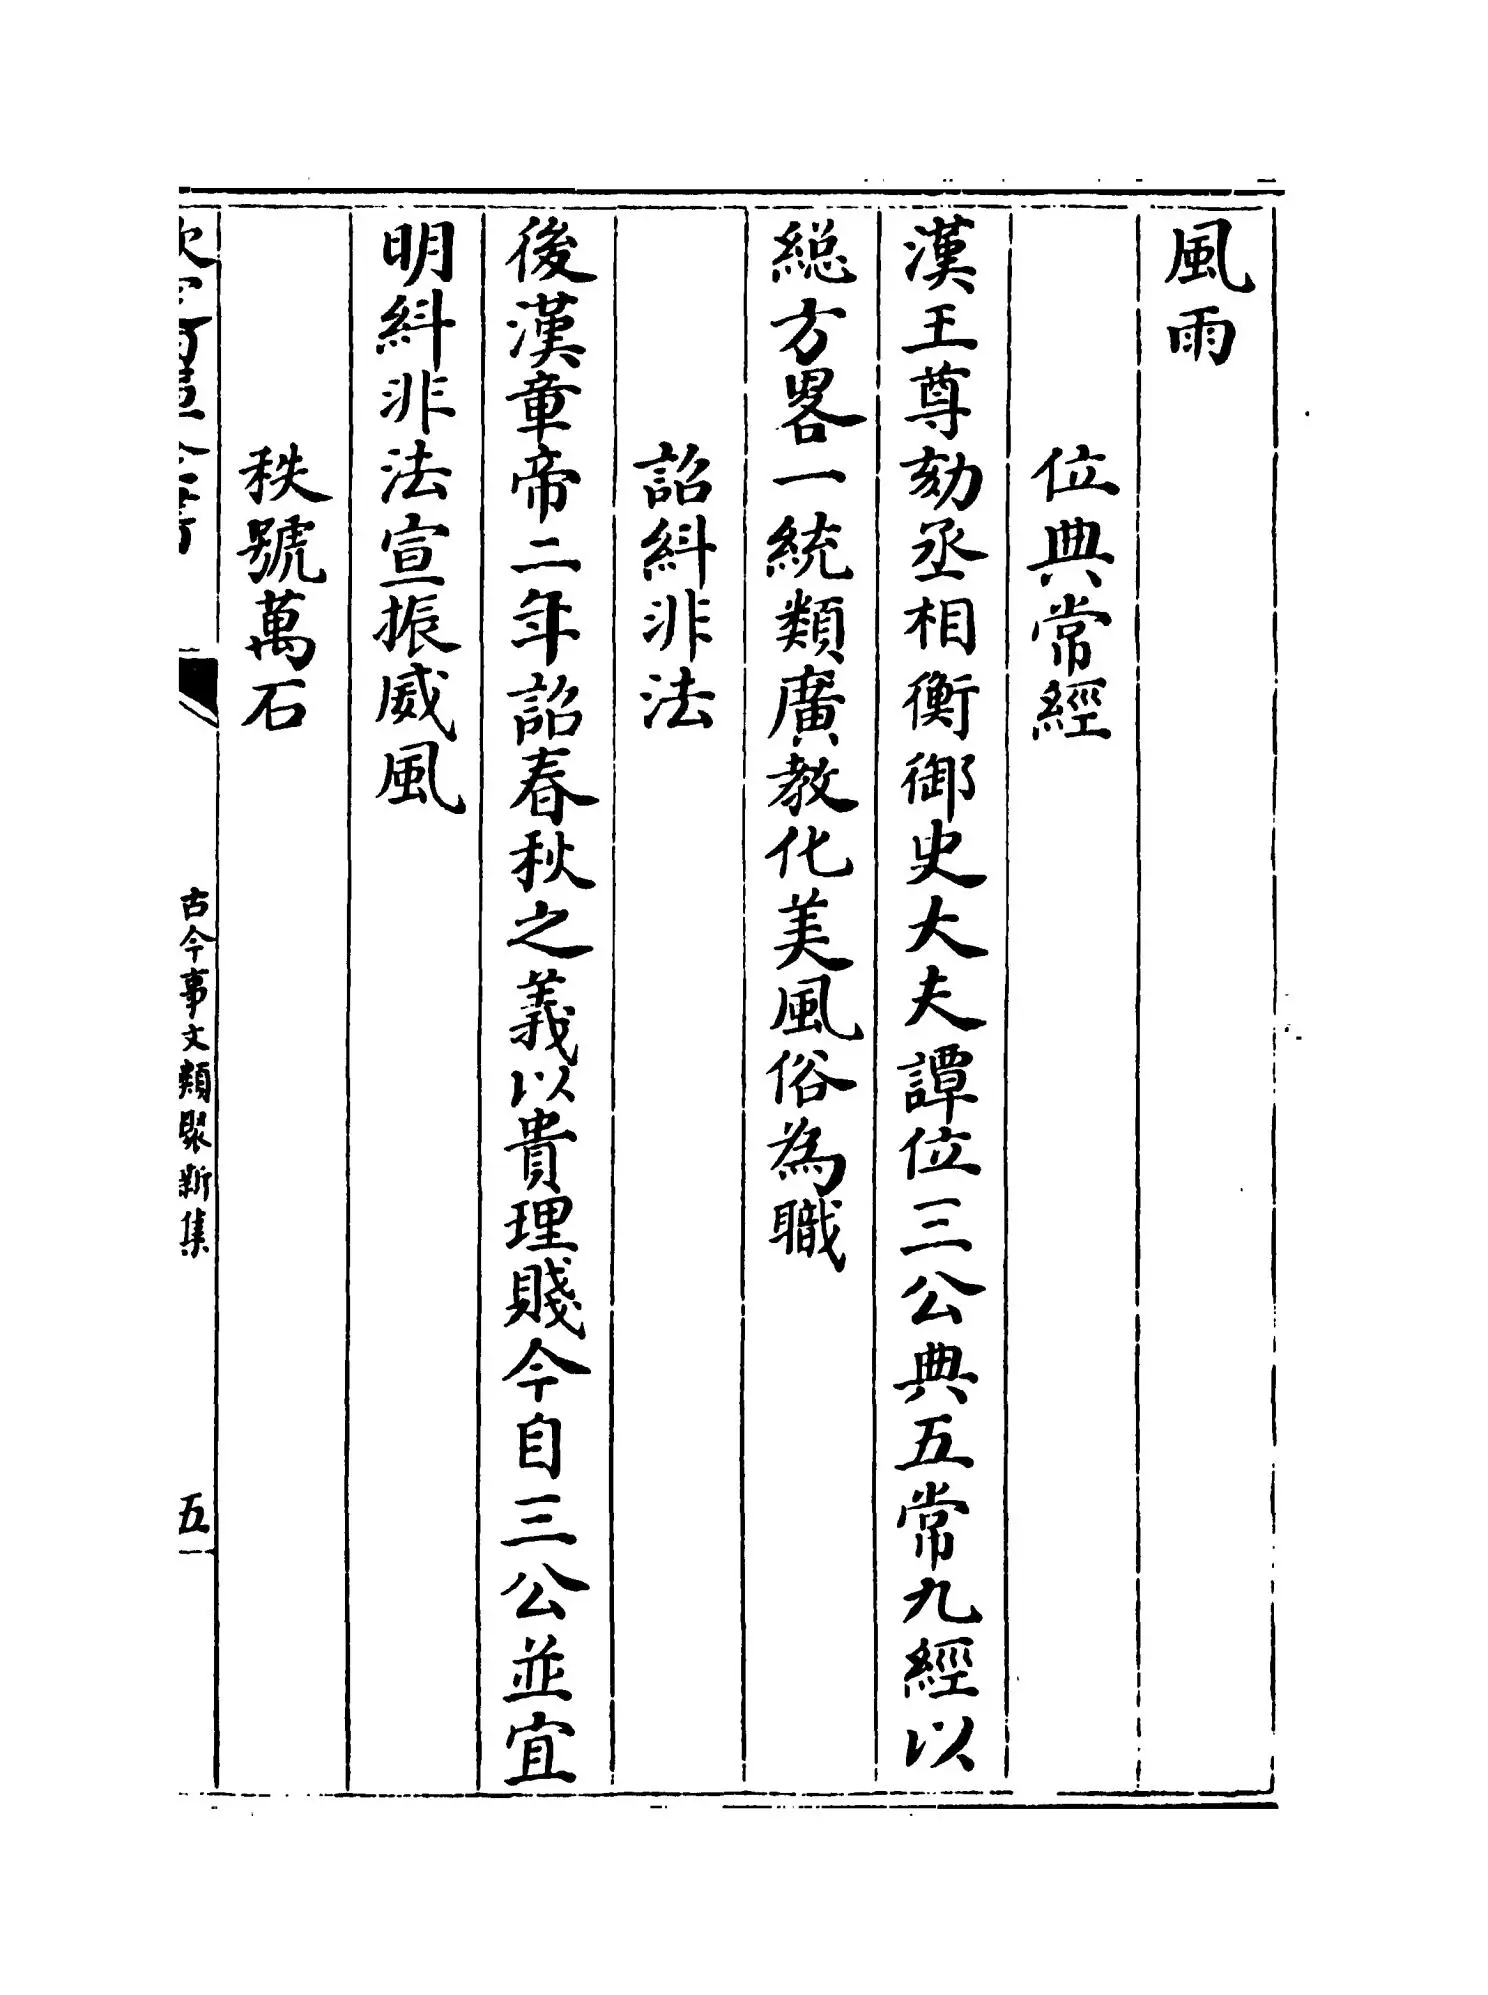 風雨
位典常經
漢王尊劾丞相衡御史大夫譚位三公典五常九經以
緫方畧一統類廣教化美風俗為職
詔糾非法
後漢章帝二年詔春秋之義以貴理賤今自三公並宜
明糾非法宣振威風
秩號萬石
欽定四庫全書
古今事文類聚新集
五